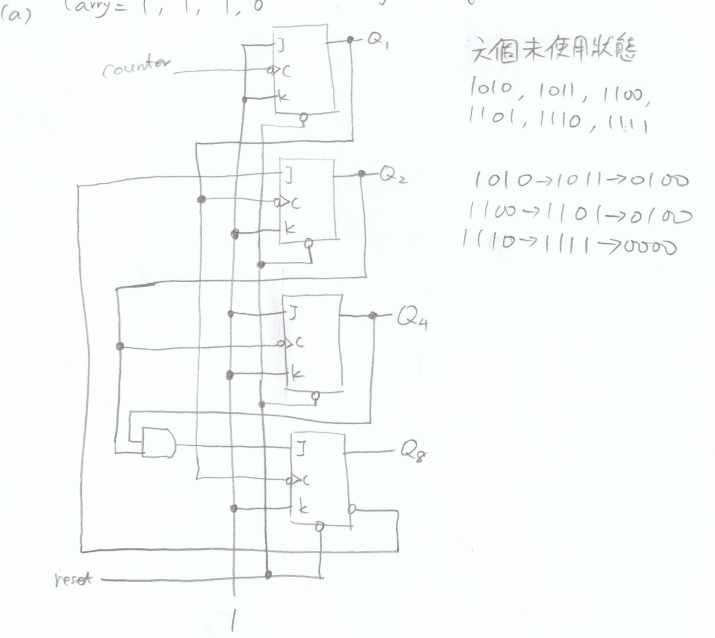 (a) Carry = 1, 1, 1, 0
J
Q1
counter
C
K
J
Q2
C
K
J
Q4
C
K
J
Q8
C
K
reset
1
六個未使用狀態
1010, 1011, 1100,
1101, 1110, 1111
1010→1011→0100
1100→1101→0100
1110→1111→0000